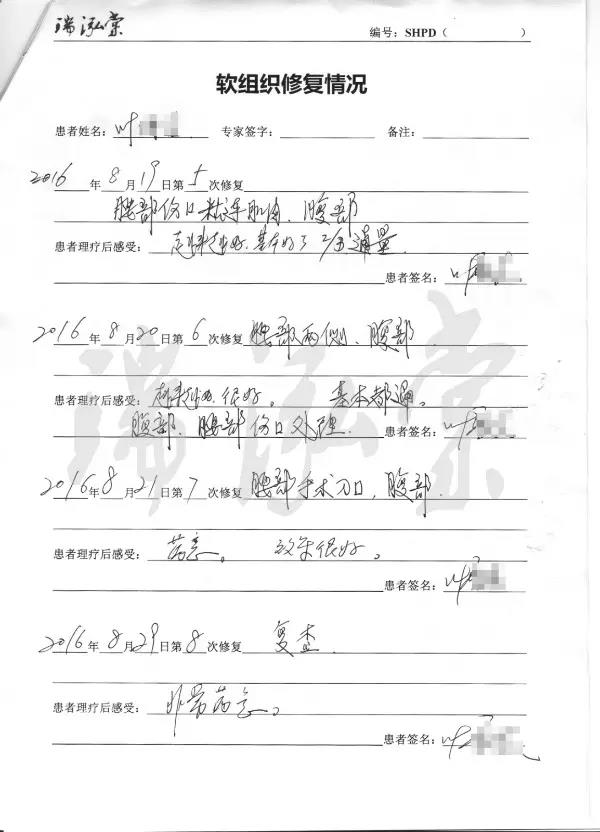 瑞泓棠
编号：SHPD（ ）
软组织修复情况
患者姓名：叶 专家签字： 备注：
2016年8月19日第5次修复
腰部伤口粘连肌肉、腹部
患者理疗后感受： 越来越好.基本好了
患者签名：叶
2016年8月20日第6次修复 腰部两侧、腹部
患者理疗后感受： 越来越 很好。 基本都通。
腹部、腰部伤口处理. 患者签名：叶
瑞泓棠
2016年8月21日第7次修复 腰部手术刀口，腹部.
患者理疗后感受： 满意。 效果很好。
患者签名：叶
2016年8月29日第8次修复 复查.
患者理疗后感受： 非常满意。
患者签名：叶